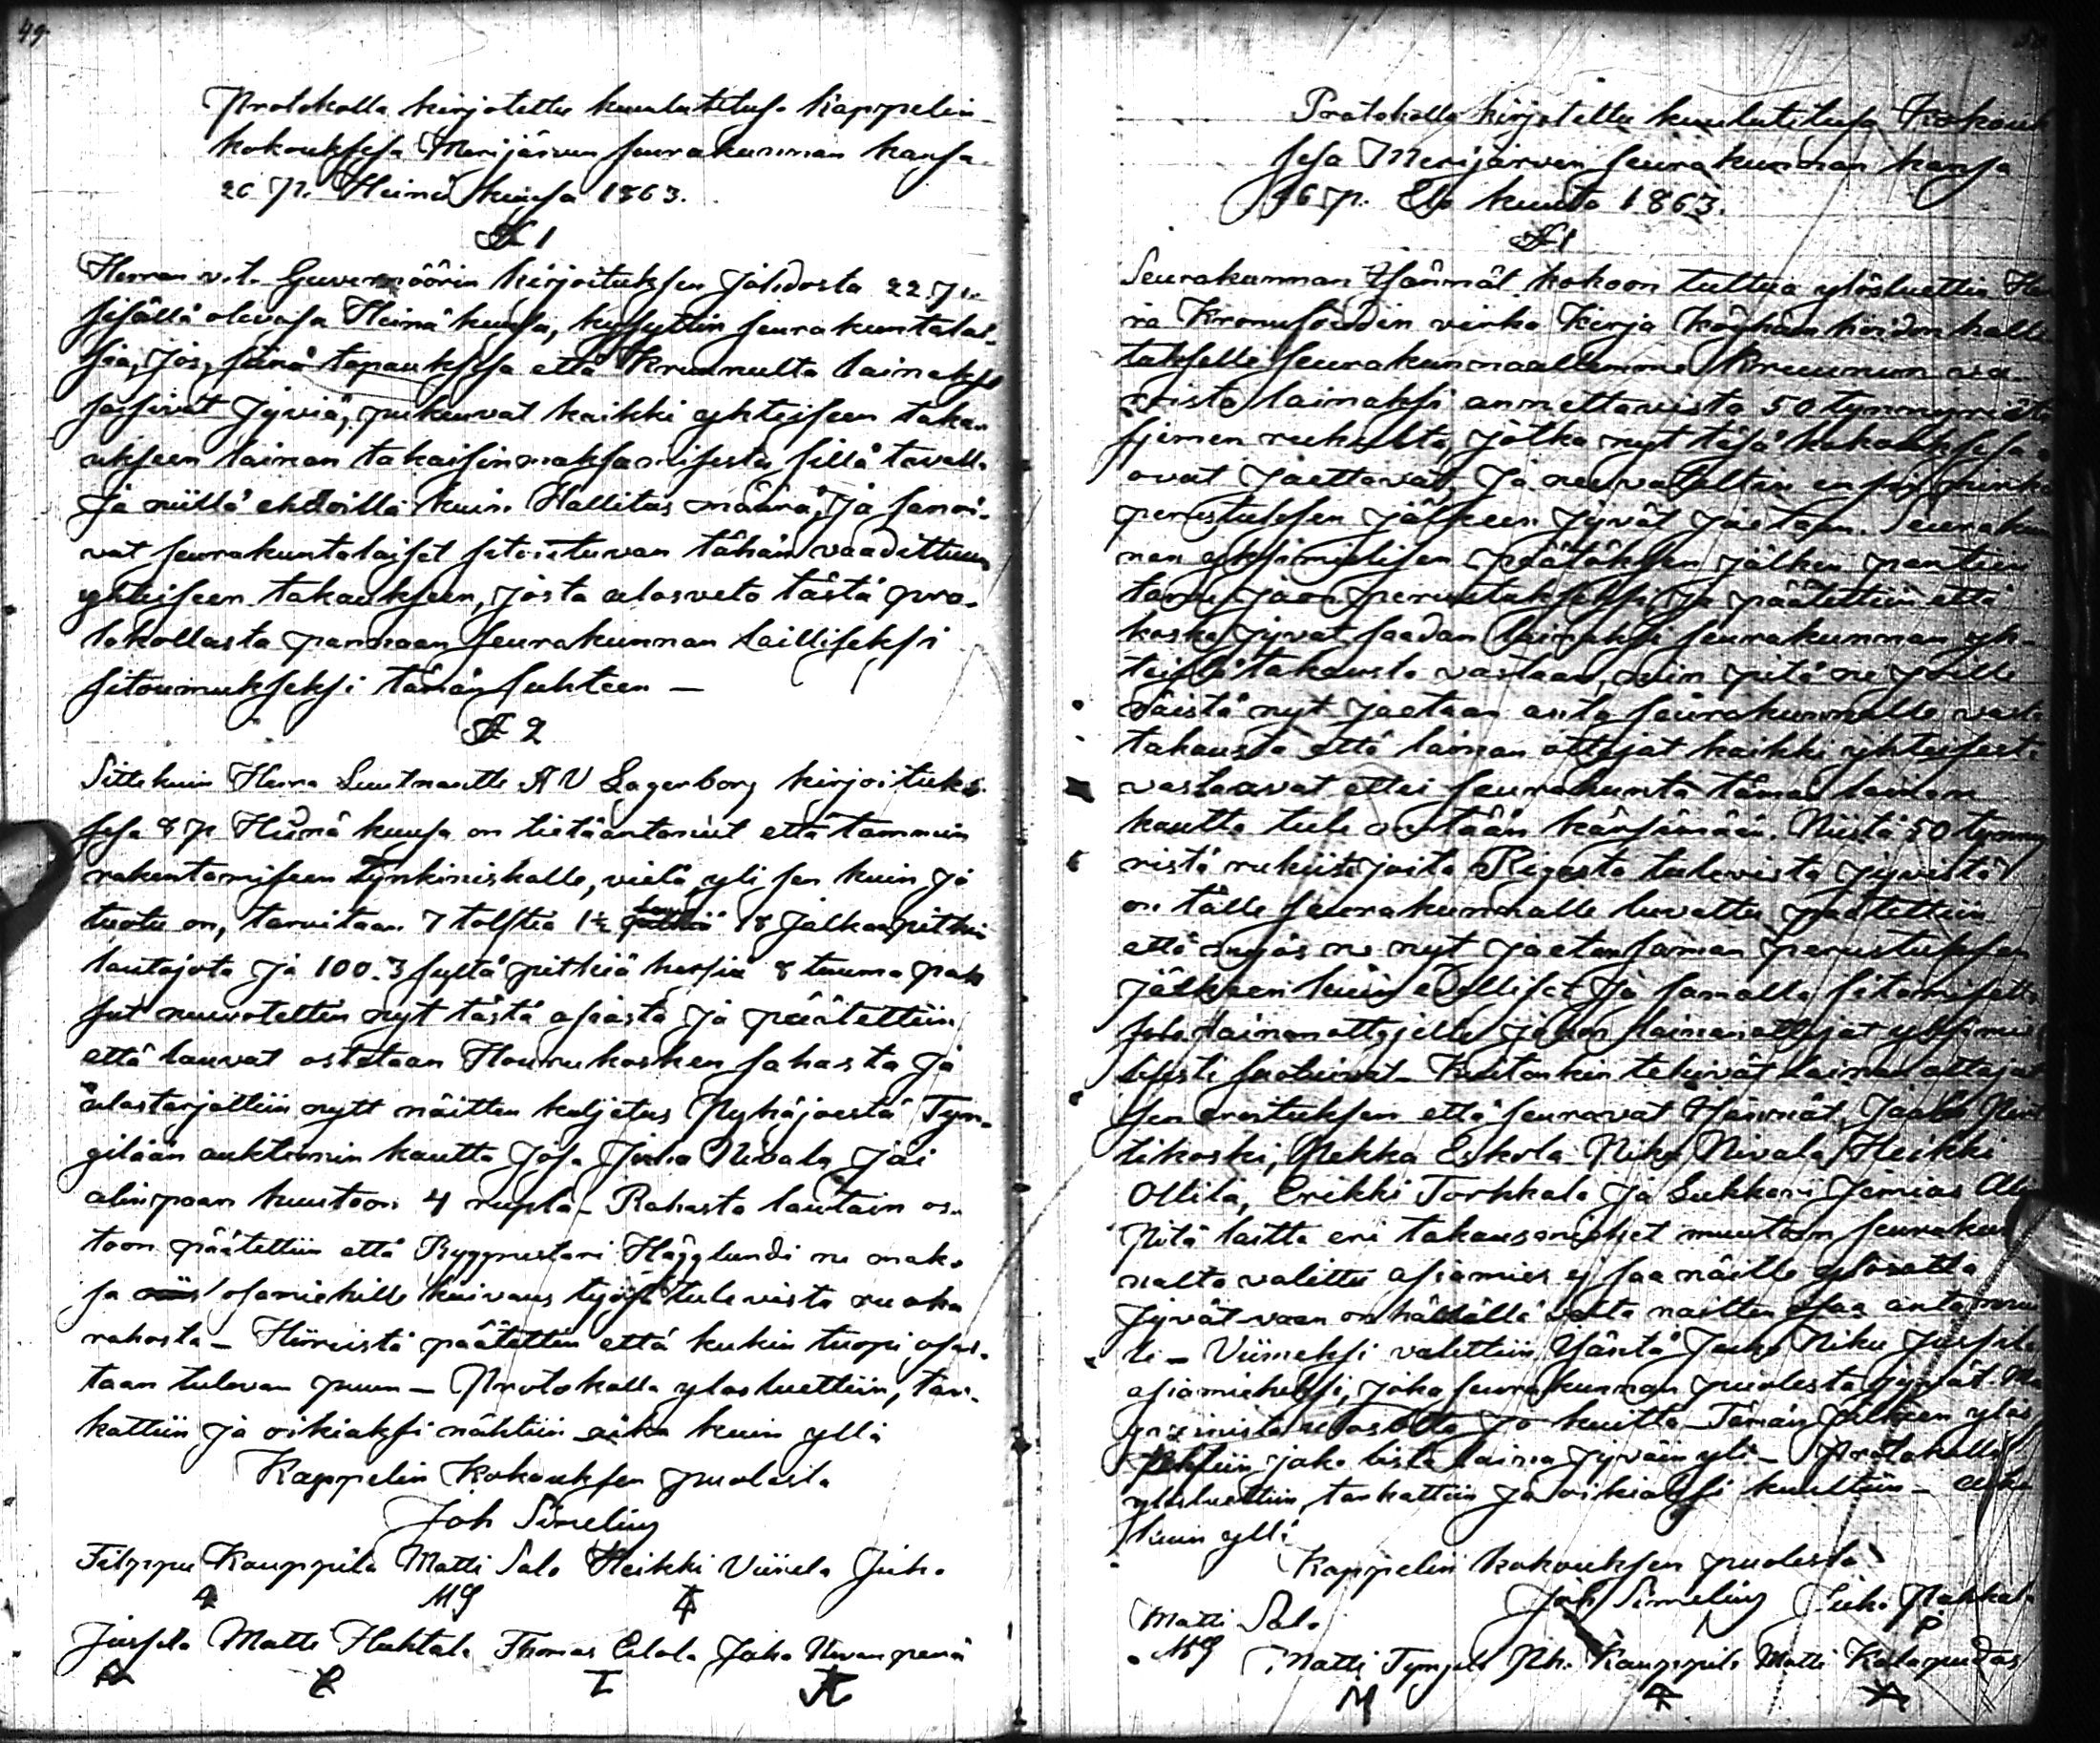 49.
Protokolla kirjotettu kuulutetusa Kappelin
kokouksesa Merijärven seurakunnan kansa
26 p. Heinä kuusa 1863.
§ 1
Herran v.t. Guvernöörin kirjoituksen johdosta 22 p.
sisällä olevasa Heinä kuusa, kysyttiin seurakuntalai-
sia, jos, siinä tapauksesa että Kruunulta lainaksi
saisivat jyviä, rukeuvat kaikki yhteiseen taka-
ukseen lainan takaisinmaksamisesta sillä tavalla
ja niillä ehdoilla kuin Hallitus määrä, ja sanoi-
vat seurakuntalaiset sitoutuvan tähän vaadittuun
yhteiseen takaukseen, josta ulosveto tästä pro-
tokollasta pannaan seurakunnan lailliseksi
sitoumukseksi tämän suhteen —
§ 2
Sitte kuin Herra Luutnantti A V Lagerborg kirjoituk-
sesa 8 p Heinä kuusa on tietäantanut että tammin
rakentamiseen Tynkiniskalle, vielä yli sen kuin jo
tuotu on, tarvitaan 7 tolftia 1½ tuu 18 jalkaa pitkiä
lautojota ja 100. 3 syltä pitkiä hirsiä 8 tuuma pak
sut neuvoteltiin nyt tästä asiasta ja päätettiin
että lauvat ostetaan Hourukosken sahasta ja
ulostarjottiin nytt näitten kuljetus Pyhäjoesta Tyn-
gilään auktionin kautta josa Juho Nivala jäi
alinpaan huutoon 4 ruplä — Rahasta lautain os-
toon päätettiin että Byggmestari Hägglundi ne mak-
sa osamiehille kaivaus työstä tulevista ruoka
rahasta — Hirsistä päätettiin että kukin tuopi osas-
taan tulevan puun — Protokolla ylösluettiin, tar-
kattiin ja oikiaksi nähtiin aika kuin yllä
Kappelin Kokouksen puolesta
Joh Simelius
Filppu Kauppila Matti Salo Heikki Viirela Juho
MS
Jussila Matti Huhtala Thomas Eilola Juho Nivanperä
Protokolla kirjotettu kuulutetusa Kokouk
sesa Merijärven seurakunnan kansa
16 p. Elo kuuta 1863.
§ 1
Seurakunnan Isännät kokoon tultua ylösluettiin Her
ra Kronufoudin virka Kirja köyhäin hoidon halli
tukselle seurakunnaallemme Kruunun va-
roista lainaksi annettavista 50 tynnyriästä
siemen rukiista, jotka nyt täsä kokouksesa
ovat jaettavat, ja neuvoteltiin ensin minkä
perustuksen jälkeen jyvät jaetaan. Seurakun
nan yksimielisen päätöksen jälken pantiin
jaon perustukseksi ja päätettiin että
koska jyvät saadan lainaksi seurakunnan yh-
teistä takausta vastaan, niin pitä ne joille
näistä nyt jaetaan anta seurakunnalle vasta
takausta että lainan ottajat kaikki yhteisesti
vastaavat ettei seurakunta tämän lainan
kautta tule mitään kärsimään. Niistä 50 tynny
ristä rukiista joita Rigasta tulevista jyvistä
on tälle seurakunnalle luvattu päätettiin
että myös ne nyt jaetan saman perustuksen
jälkeen kuin edelliset ja samalla sitomisella
lainanottajille johon lainanottajat yksimie
lisesti suostuivat — Kuitenkin tekivät lainan ottajat
sen eroituksen että seuraavat Isännät, Jaako Pent
tikoski, Pekka Eskola Niku Nivala Heikki
Ollila, Erikki Torkkala ja Lukkari Jemias Ala
Pitä laitta eri takausmiehet muutoin seurakun
nalta valittu asiamies ej saa näille ylösotta
jyvät vaan on hänellä valta näitten osaa anta muu
lle — Viimeksi valittiin Isäntä Jaako Niku Jussila
asiamieheksi, joka seurakunnan puolesta jyvät Ma
gasinista ulosotta ja kuitta — Tämän jälkeen ylös
pantiin jako lista laina jyväin yli — Protokolla
ylösluettiin, tarkattiin ja oikiaksi kuultiin — aika
kuin yllä
Kappelin kokouksen puolesta
Joh Simelius Juho Pakkala
Matti Salo
MS Matti Tyngilä Ph. Kauppila Matti Kalapudas
M